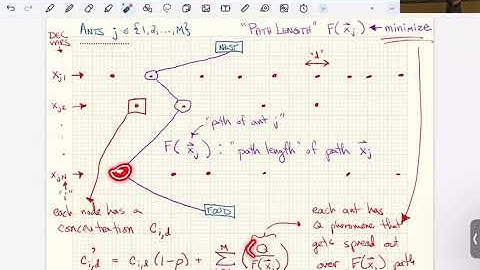 DEC VARS
ANTS j ∈ {1, 2, ..., M}
"PATH LENGTH" F(x⃗j) ← minimize
NEST
"d"
xj1 →
xj2 →
"path of ant j"
F(x⃗j) : "path length" of path x⃗j
xjN →
"i"
FOOD
each node has a concentration Ci,d
each ant has Q pheromone that gets spread out over F(x⃗j) path
C'i,d = Ci,d (1-ρ) + Σ^M (Q / F(x⃗j))